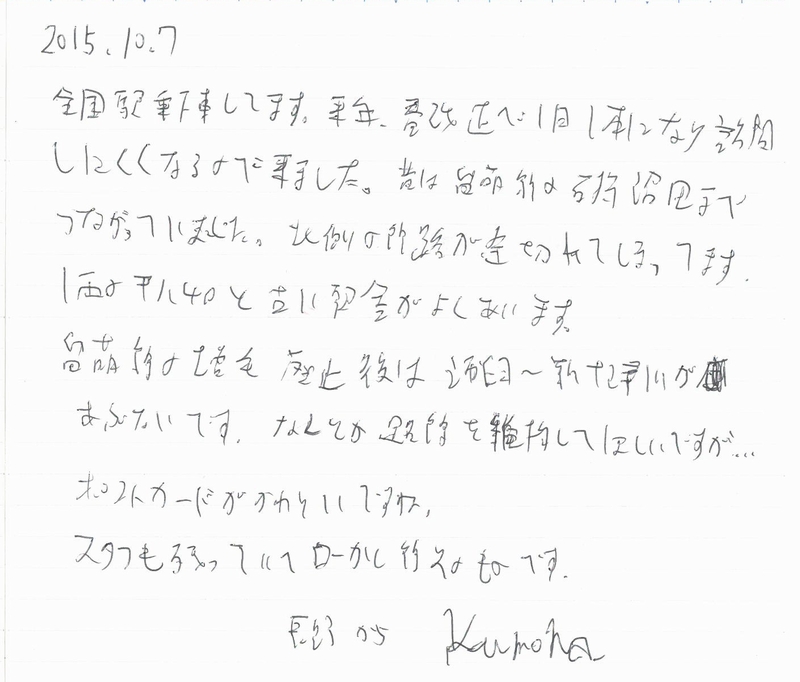 2015.10.7
全国駅乗下車してます。来年、ダイ改正で1日1本になり訪問
しにくくなるので来ました。昔は留萌線の石狩沼田まで
つながっていました。北側の線路が途切れてしまってます。
1両のキハ40と古い駅舎がよくあいます。
留萌線の増毛 廃止後は 浦臼〜新十津川が
あぶないです。なんとか路線を維持してほしいですが…
ポストカードがかわいいですね。
スタフも残っていてローカル線そのものです。
長野から Kumoha